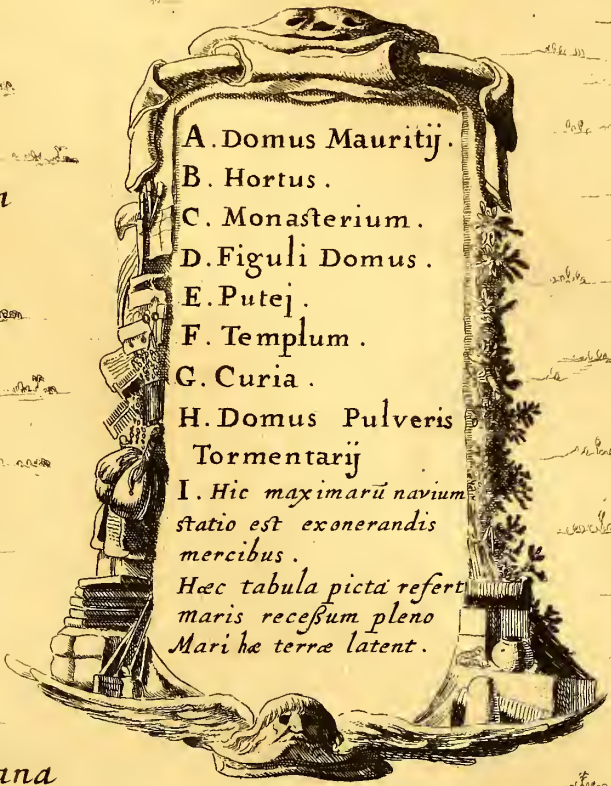 A. Domus Mauritij.
B. Hortus.
C. Monaſterium.
D. Figuli Domus.
E. Putej.
F. Templum.
G. Curia.
H. Domus Pulveris
Tormentarij
I. Hic maximarū navium
ſtatio eſt exonerandis
mercibus.
Hæc tabula picta refert
maris receßum pleno
Mari hæ terræ latent.